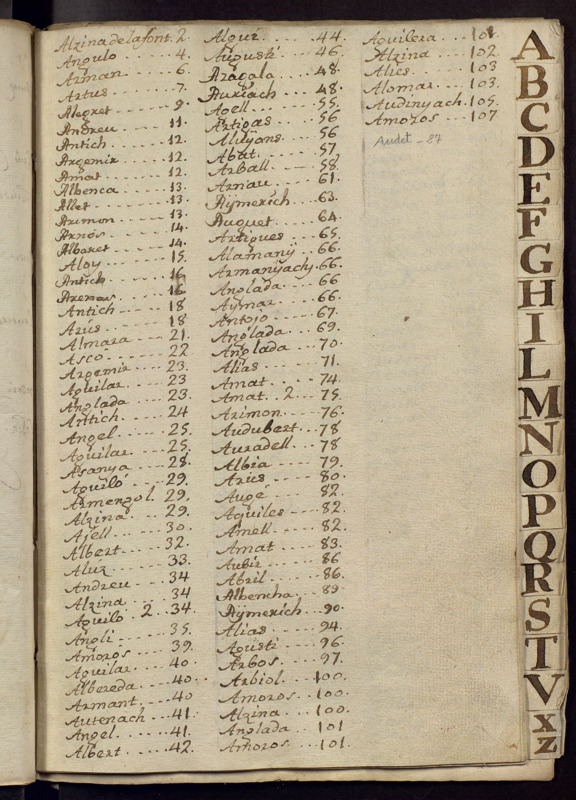 Alzina de la font. 2.
Angulo ---- 4.
Arman ---- 6.
Artus ---- 7.
Alegret ---- 9.
Andreu ---- 11.
Antich ---- 12.
Argemir ---- 12.
Amat ---- 12.
Albenca ---- 13.
Allet ---- 13.
Arimon ---- 13.
Arnos ---- 14.
Albaret ---- 14.
Aloy ---- 15.
Antich ---- 16
Arenas ---- 16
Antich ---- 18
Arus ---- 18
Almara ---- 21.
Ascó ---- 22
Argemir ---- 23.
Aguilar ---- 23
Anglada ---- 23.
Antich ---- 24
Angel ---- 25.
Aguilar ---- 25.
Asanya ---- 28.
Aguiló ---- 29.
Armengol. 29.
Alzina ---- 29.
Ajell ---- 30.
Albert ---- 32.
Aluz ---- 33.
Andreu ---- 34
Alzina ---- 34
Aguiló 2. 34.
Angli ---- 35.
Amoros ---- 39.
Aguilar ---- 40.
Albereda ---- 40.
Armant ---- 40
Autenach ---- 41.
Angel ---- 41.
Albert ---- 42.
Algué ---- 44.
Augusti ---- 46.
Aragala ---- 48.
Auriach ---- 48.
Agell ---- 55.
Artigas ---- 56
Alujans ---- 56
Abat ---- 57
Arball ---- 58.
Arnau ---- 61.
Aymerich ---- 63.
Auguet ---- 64.
Artigues ---- 65.
Alamany ---- 66.
Armanyach. 66.
Anglada ---- 66
Aymar ---- 66.
Antojo ---- 67.
Anglada ---- 69.
Anglada ---- 70.
Alias ---- 71.
Amat ---- 74.
Amat. 2. 75.
Arimon ---- 76.
Audubert ---- 78
Auradell ---- 78
Albia ---- 79.
Arus ---- 80.
Augé ---- 82.
Aguiles ---- 82.
Amell ---- 82.
Amat ---- 83.
Aubir ---- 86
Abril ---- 86.
Albencha ---- 89.
Aymerich ---- 90.
Alias ---- 94.
Agusti ---- 96.
Arbos ---- 97.
Arbiol ---- 100.
Amoros ---- 100.
Alzina ---- 100.
Anglada ---- 101
Amoros ---- 101.
Aguilera ---- 101
Alzina ---- 102
Alies ---- 103
Alomar ---- 103.
Audinyach. 105.
Amoros ---- 107
Audet -- 87
A
B
C
D
E
F
G
H
I
L
M
N
O
P
Q
R
S
T
V
X
Z